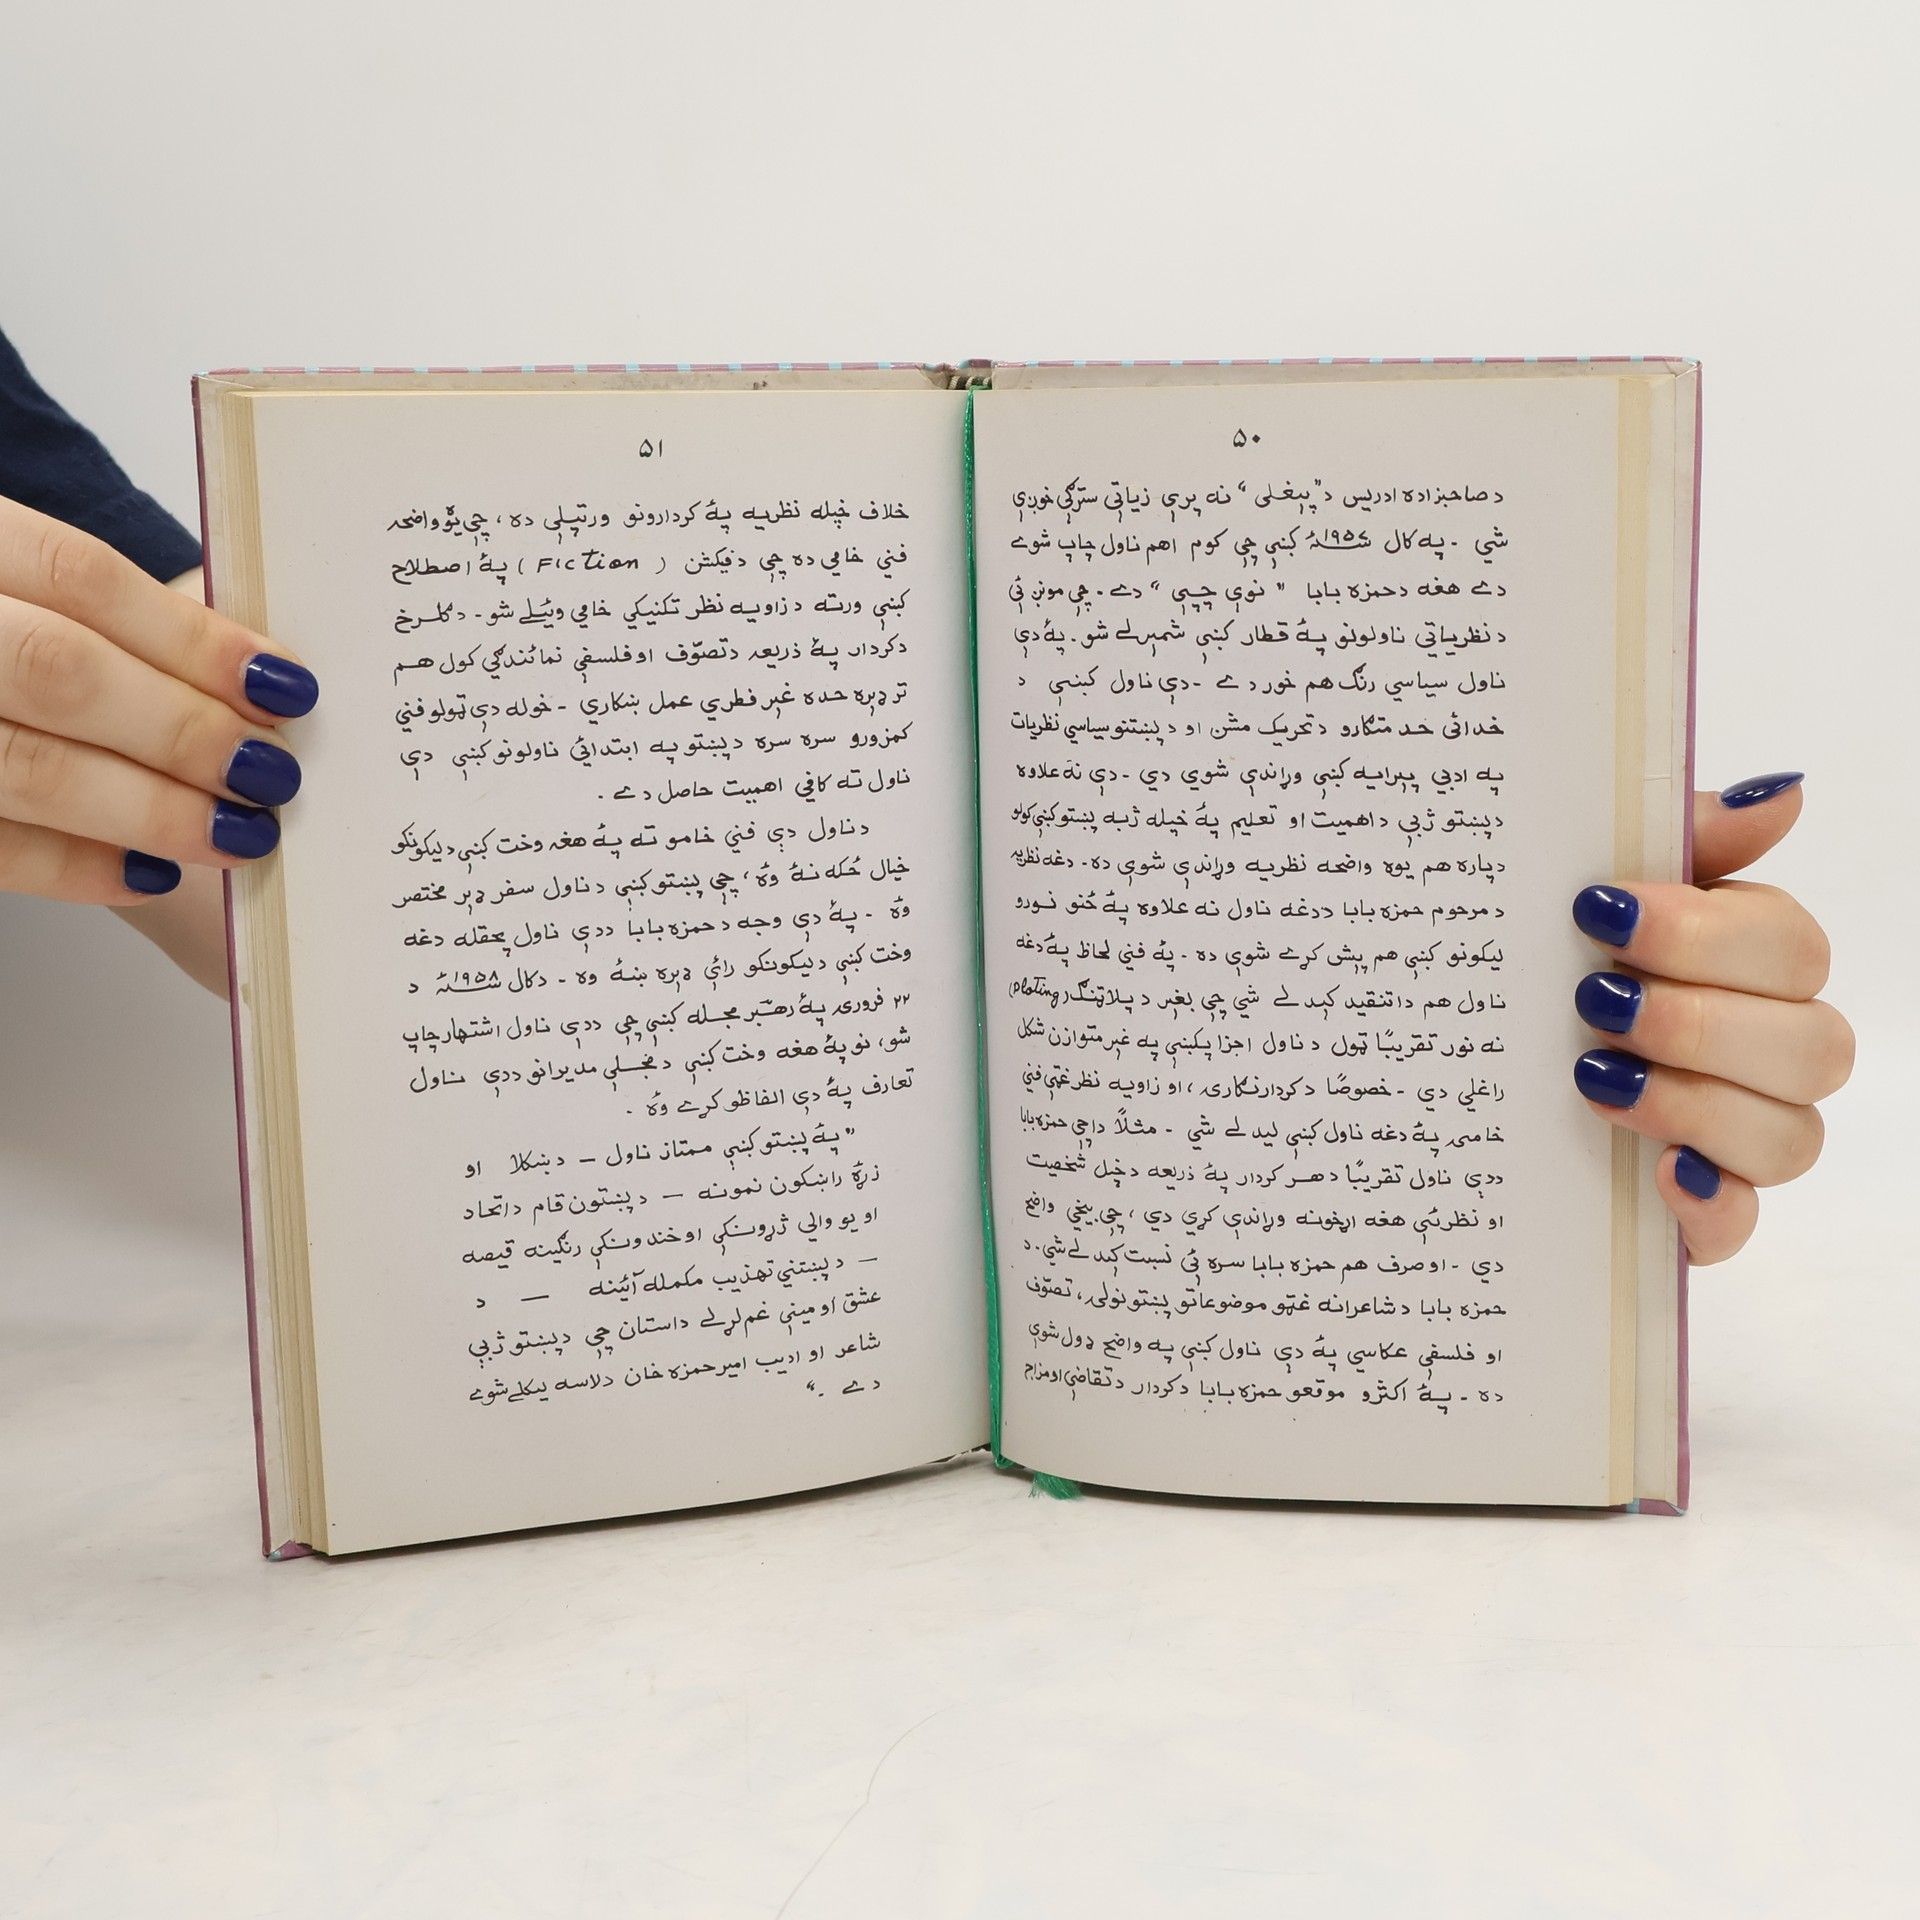 ۵۰
د صاحبزاده ادریس د "پیغلې" نه پرې زیاتې سترګې خوږې
شي - په کال ۱۹۵۷ء کښې چې کوم اهم ناول چاپ شوے
دے هغه د حمزه بابا "نوې چپې" دے - چې مونږ ئې
د نظریاتي ناولونو پهٔ قطار کښې شمېرلے شو. پهٔ دې
ناول سیاسي رنګ هم خور دے - دې ناول کښې د
خدائی خدمتګارو د تحریک مشن او د پښتنو سیاسي نظریات
په ادبي پیرایه کښې وړاندې شوي دي - دې نه علاوه
د پښتو ژبې د اهمیت او تعلیم پهٔ خپله ژبه پښتو کښې کولو
دپاره هم یوه واضحه نظریه وړاندې شوې ده - دغه نظریه
د مرحوم حمزه بابا د دغه ناول نه علاوه پهٔ ځنو نورو
لیکونو کښې هم پېش کړے شوې ده - پهٔ فني لحاظ پهٔ دغه
ناول هم دا تنقید کېدلے شي چې بغېر د پلاټنګ (Ploting)
نه نور تقریبًا ټول د ناول اجزا پکښې په غېر متوازن شکل
راغلي دي - خصوصًا د کردار نګارۍ، او زاویه نظر غټې فني
خامۍ پهٔ دغه ناول کښې لیدلے شي - مثلاً دا چې حمزه بابا
ددې ناول تقریبًا د هر کردار پهٔ ذریعه د خپل شخصیت
او نظرئې هغه اړخونه وړاندې کړي دي، چې بیخي واضح
دي - او صرف هم حمزه بابا سره ئې نسبت کېدلے شي. د
حمزه بابا د شاعرانه غټو موضوعاتو پښتونولۍ، تصوّف
او فلسفې عکاسي پهٔ دې ناول کښې په واضح ډول شوې
ده - پهٔ اکثرو موقعو حمزه بابا د کردار د تقاضې او مزاج
۵۱
خلاف خپله نظریه پهٔ کردارونو ورتپلې ده، چې یوه واضحه
فني خامي ده چې د فیکشن (Fiction) پهٔ اصطلاح
کښې ورته د زاویه نظر تکنیکي خامي وئیلے شو - د ګلرخ
د کردار پهٔ ذریعه د تصوّف او فلسفې نمائندګي کول هم
تر ډېره حده غېر فطري عمل ښکاري - خو له دې ټولو فني
کمزورو سره سره د پښتو په ابتدائي ناولونو کښې دې
ناول ته کافي اهمیت حاصل دے -
د ناول دې فني خامو ته پهٔ هغه وخت کښې د لیکونکو
خیال ځکه نهٔ وهٔ، چې پښتو کښې د ناول سفر ډېر مختصر
وهٔ - پهٔ دې وجه د حمزه بابا ددې ناول پحقله دغه
وخت کښې د لیکونکو رائې ډېره ښهٔ وه - د کال ۱۹۵۸ء د
۲۲ فرورۍ پهٔ رهبر مجله کښې چې ددې ناول اشتهار چاپ
شو، نو پهٔ هغه وخت کښې د مجلې مدیرانو ددې ناول
تعارف پهٔ دې الفاظو کړے وهٔ -
"پهٔ پښتو کښې ممتاز ناول — د ښکلا او
زړهٔ راښکون نمونه — د پښتون قام د اتحاد
او یو والي ژړونکې او خندونکې رنګینه قیصه
— د پښتني تهذیب مکمله آئینه — د
عشق او مینې غم لړلے داستان چې د پښتو ژبې
شاعر او ادیب امیر حمزه خان د لاسه لیکلے شوے
دے -"